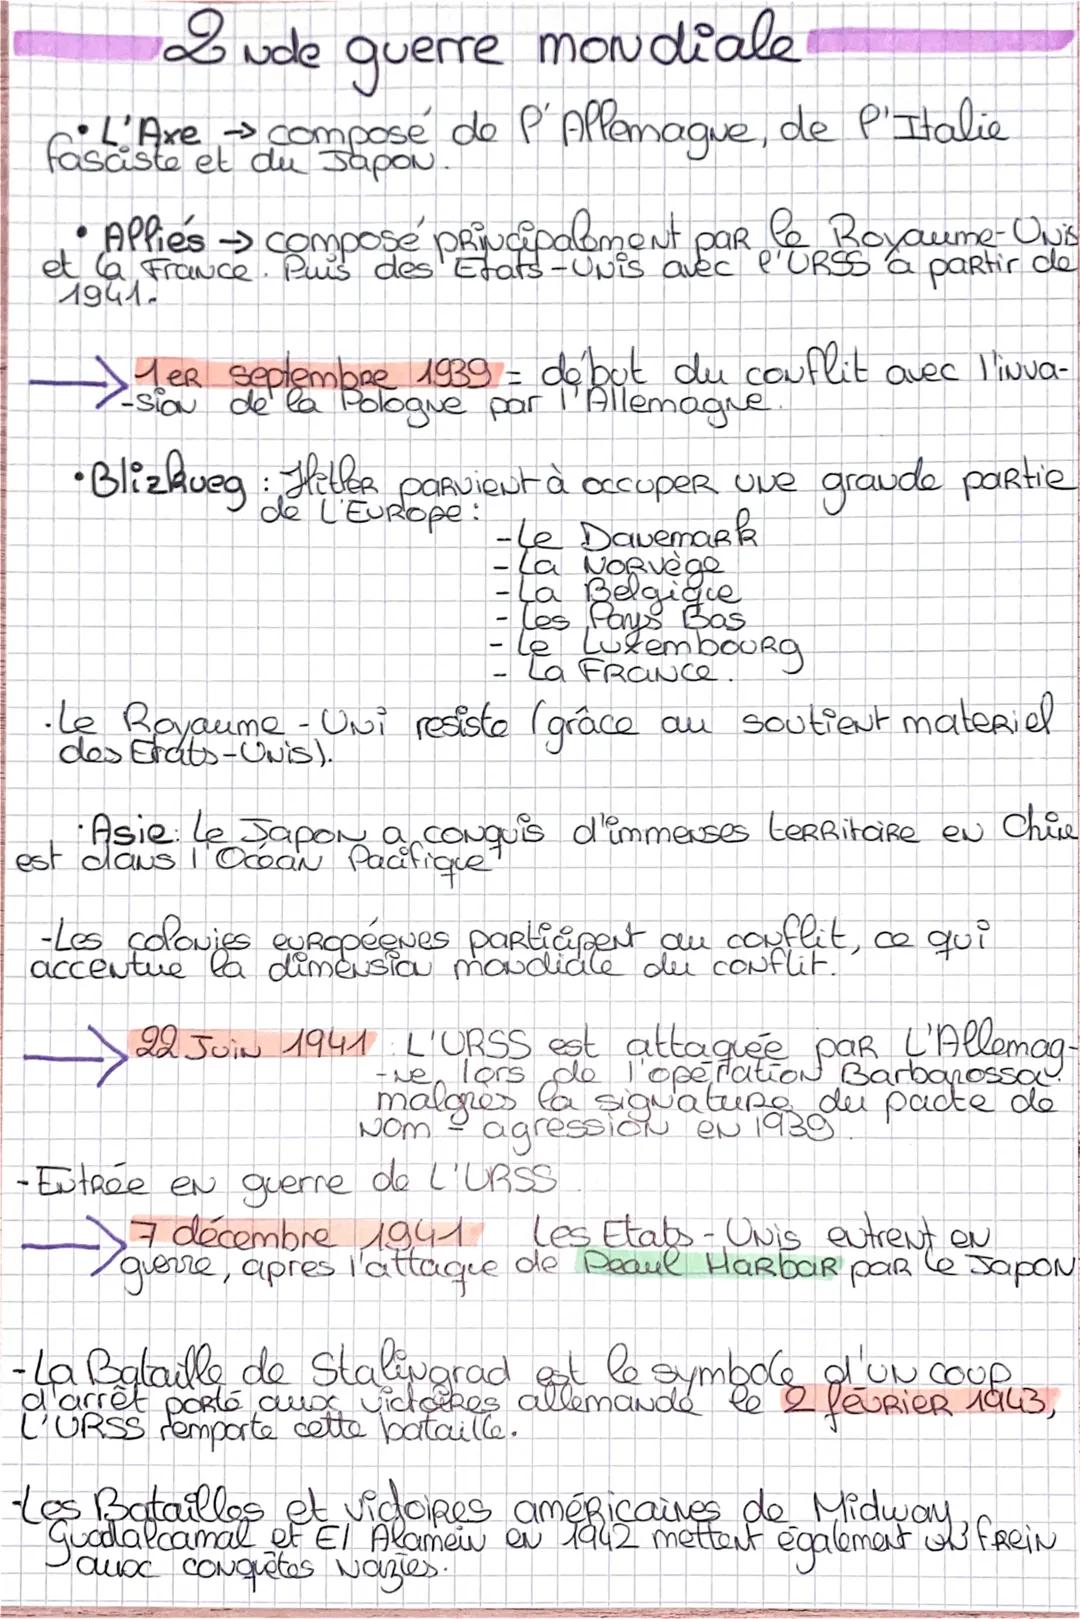 2nde guerre mondiale
• L'Axe → composé de l'Allemagne, de l'Italie
fasciste et du Japon.
• Alliés → composé principalement par le Royaume-Unis
et la France. Puis des Etats-Unis avec l'URSS à partir de
1941.
→ 1er septembre 1939 = début du conflit avec l'inva-
-sion de la Pologne par l'Allemagne.
• Blizkueg : Hitler parvient à occuper une grande partie
de l'Europe :
- Le Danemark
- La Norvège
- La Belgique
- Les Pays Bas
- Le Luxembourg
- La France.
• Le Royaume-Uni resiste (grâce au soutient materiel
des Etats-Unis).
• Asie: Le Japon a conquis d'immenses territoire en Chine
est dans l'Océan Pacifique
- Les colonies européenes participent au conflit, ce qui
accentue la dimension mondiale du conflit.
→ 22 Juin 1941 : L'URSS est attaquée par L'Allemag-
-ne lors de l'opération Barbarossa.
malgres la signature du pacte de
nom - agression en 1939.
- Entrée en guerre de L'URSS
→ 7 décembre 1941 Les Etats-Unis entrent en
guerre, apres l'attaque de Peaul Harbar par le Japon
- La Bataille de Stalingrad est le symbole d'un coup
d'arrêt porté aux victoires allemande le 2 février 1943,
L'URSS remporte cette bataille.
- Les Batailles et victoires américaines de Midway,
Guadalcamal et El Alamein en 1942 mettent également un frein
aux conquêtes nazies.